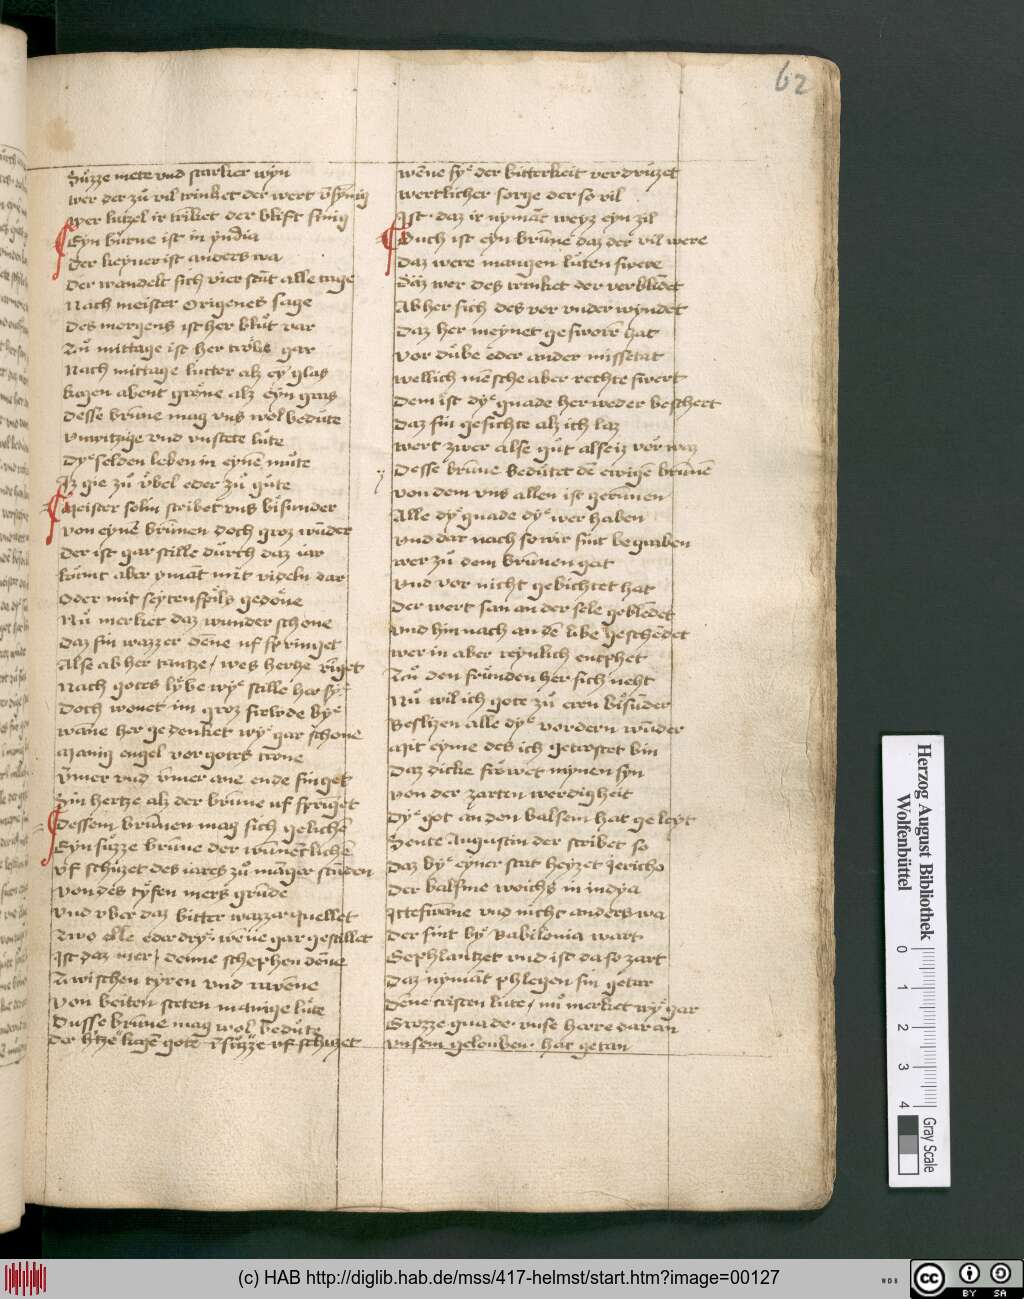 62
Suͦzze mete vnd starker wyn
wer der zuͦ vil trinket der wert vͤsynnig
Wer lutzel ir trinket der blift sinnig
Eyn burne ist in yndia
Der keyner ist anders wa
Der wandelt sich vier stūt alle tage
Nach meister Origenes sage
Des morgens ist her bluͦt var
Zuͦ mittage ist her troͤbe gar
Nach mittage lutter alz ey glas
kegen abent groͤne alz eyn gras
Desse brūne mag vns wol bedute
vnwitzige vnd vnstete lute
Dyͤ selden leben in eynē muͦte
Iz gie zuͦ vbel eder zuͦ gute
Meister solin scribet vns bisunder
von eynē brūnen doch groz wūder
Der ist gar stille durch daz iar
kumt aber ymāt mit videln dar
Oder mit seytenspils gedoͤne
Nuͦ merket daz wunder schone
Daz sin wazzer dēne uf springet
Alse ab her tantze / wes hertze ringet
Nach gotes lybe wyͤ stille her syͤ
Doch wonet im groz froyde byͤ
wāne her gedenket wyͤ gar schone
Manig engel vor gotes trone
vͤmer vnd vͤmer ane ende singet
Sin hertze alz der brūne uf springet
Dessem brūnen mag sich gelichē
Eyn suzze brūne der wūnēclichē
vf schuzet des iares zuͦ māger stūden
von des tyfen meres grūde
vnd vber daz bitter wazzar quellet
Zwo elle eder dryͤ wēne gar gestillet
Ist daz mer / deme schephen dēne
Zwischen tyren vnd ravēne
von beiten steten manige lute
Dusse brūne mag wol bedute
Der htze kegē gote vͤsuzze vf schuzet
wēne syͤ der bitterkeit verdruzet
wertlicher sorge der so vil
Ist · daz ir nymāt weyz eyn zil
Ouch ist eyn brūne daz der vil were
Daz were mangen luten swere
Daz wer des trinket der verblēdet
Ab her sich des vor vnder wyndet
Daz her meynet gesworē hat
vor dube eder ander missetat
wellich mēsche aber rechte swert
Dem ist dyͤ gnade her weder beschert
Daz sin gesichte alz ich laz
wert zwer alse gut alse iz vor waz
Desse brūne bedutet dē ewigē brūnē
von dem vns allen ist gerūnen
Alle dyͤ gnade dyͤ wer haben
vnd dar nach so wir sint begraben
wer zuͦ dem brūnen gat
vnd vor nicht gebichtet hat
Der wert san an der sele geblēdet
vnd hin nach an dē libe geschēdet
wer in aber reynlich entphet
Zuͦ den frunden her sich neht
Nuͦ wil ich gote zuͦ eren bisunder
Beslizen alle dyͤ vordern wūder
Mit eyme des ich getrostet bin
Daz dicke frowet mynen syn
von der zarten werdigheit
Dyͤ got an den balsem hat geleyt
Sente Augustin der scribet so
Daz byͤ eyner stat heyzet Jericho
Der balsme woichs in indya
IttesWāne vnd nicht anders wa
Der sint byͤ Babilonia wart
Gephlantzet vnd ist da so zart
Daz nymāt phlegen sin getar
Dēne cristen lute / nuͦ merket wyͤ gar
Grozze gnade · vnse herre dar an
vnsem gelouben · hat getan
Herzog August Bibliothek
Wolfenbüttel
0 1 2 3 4
Gray Scale
(c) HAB http://diglib.hab.de/mss/417-helmst/start.htm?image=00127
WDB
cc BY SA